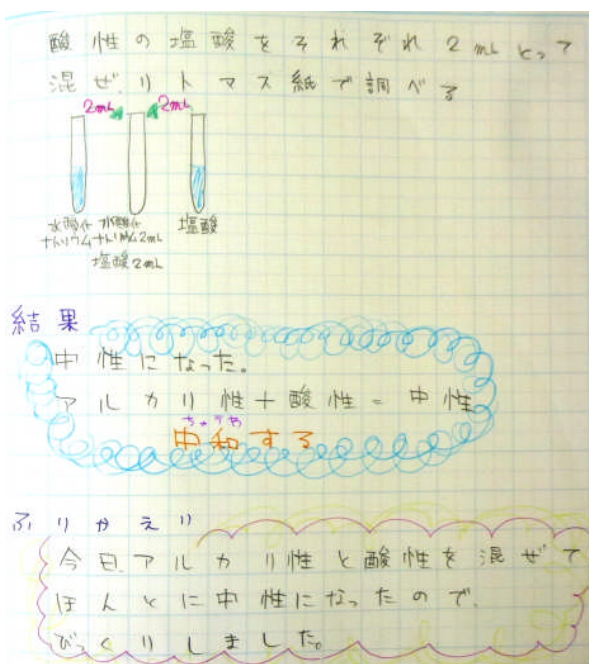 酸性の塩酸をそれぞれ2mLとって
混ぜ、リトマス紙で調べる
2mL 2mL
水酸化ナトリウム
水酸化ナトリウム2mL
塩酸2mL
塩酸
結果
中性になった。
アルカリ性+酸性=中性
ちゅうわ
中和する
ふりかえり
今日、アルカリ性と酸性を混ぜて
ほんとに中性になったので、
びっくりしました。